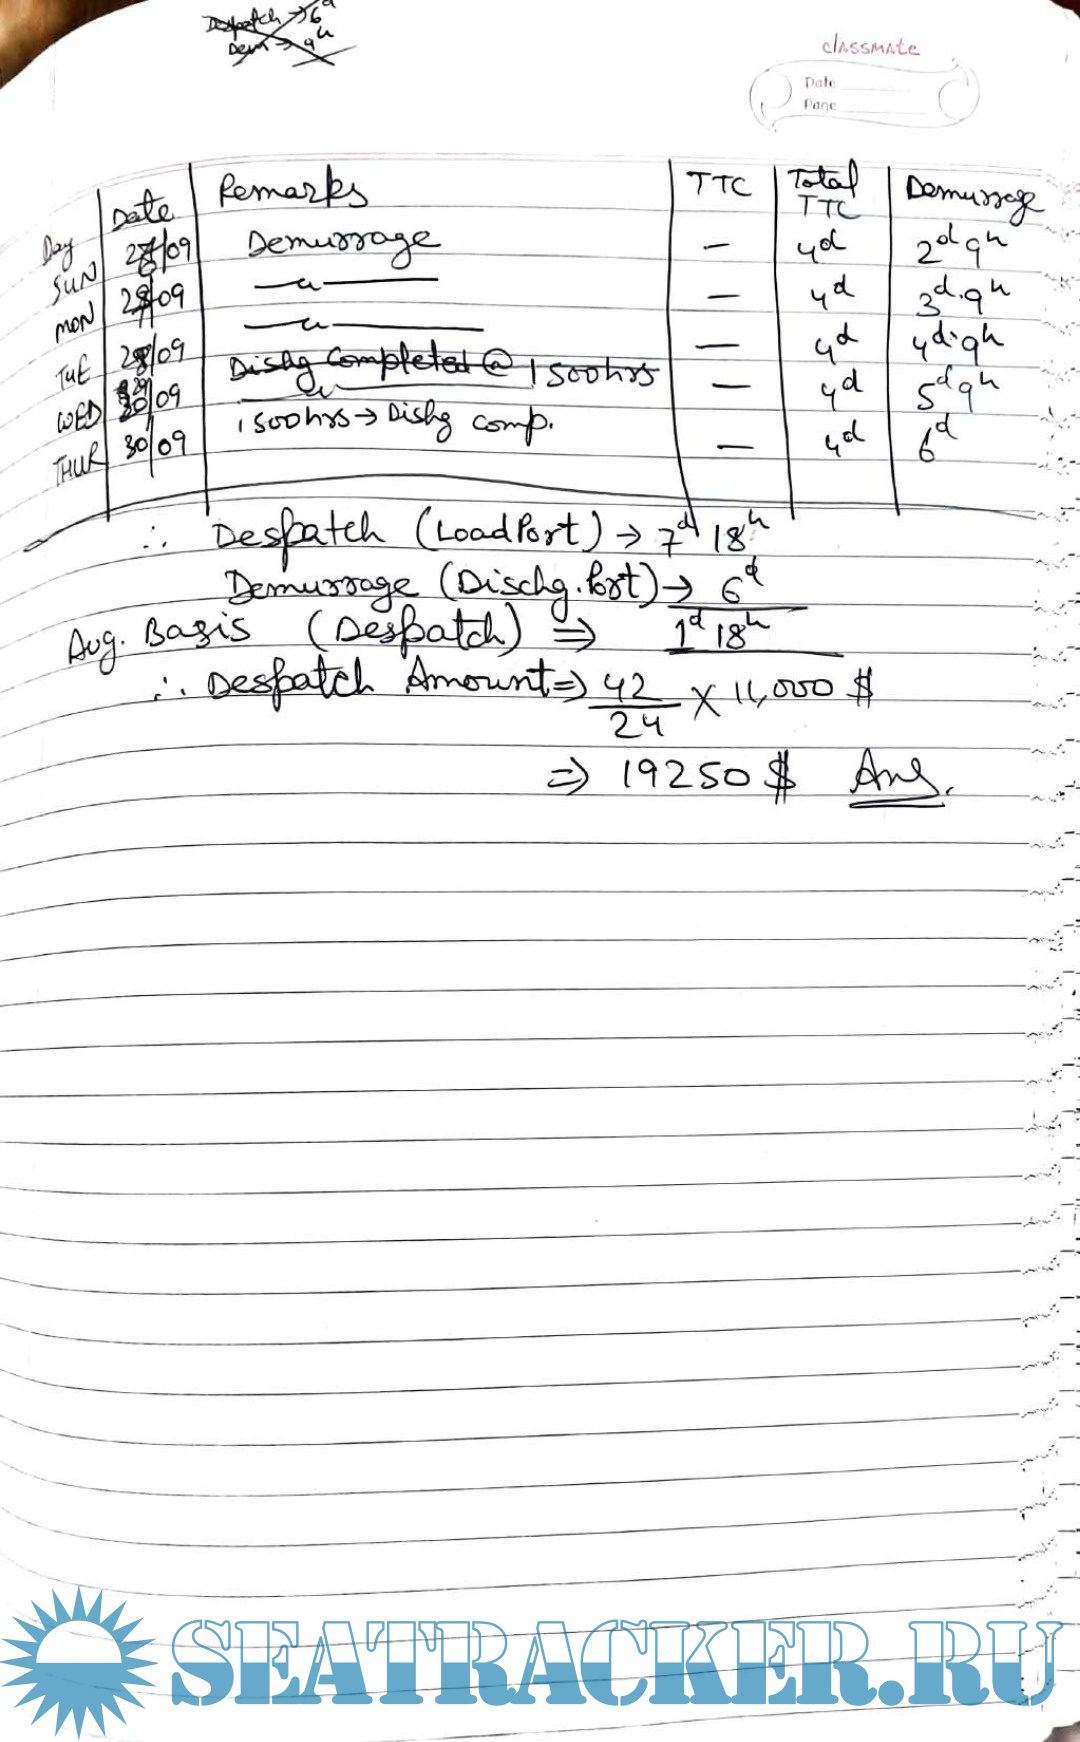 Despatch → 6d
Dem → 9h
classmate
Date
Page
Day Date Remarks TTC Total TTC Demurrage
SUN 26/09 Demurrage — 4d 2d 9h
MON 27/09 —"— — 4d 3d.9h
TUE 28/09 —"— — 4d 4d.9h
Dischg Completed @ 1500hrs
WED 29/09 —"— — 4d 5d 9h
THUR 30/09 1500hrs → Dishg comp. — 4d 6d
∴ Despatch (LoadPort) → 7d 18h
Demurrage (Dischg. Port) → 6d
Avg. Basis (Despatch) ⇒ 1d 18h
∴ Despatch Amount ⇒ 42/24 × 11,000 $
⇒ 19250 $ Ans.
SEATRACKER.RU